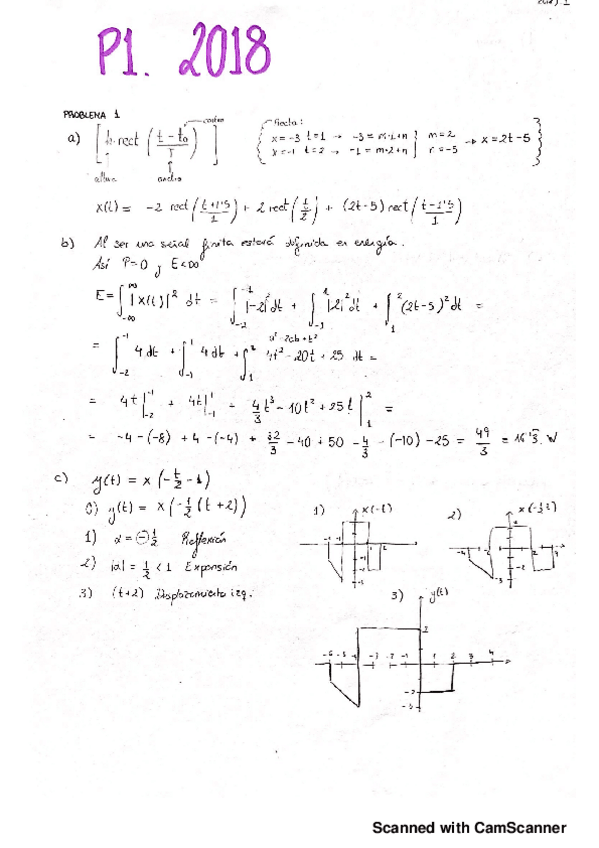 P1. 2018
PROBLEMA 1
a) [h·rect((t-t₀)/T)] centro altura ancho
Recta:
x=-3 t=1 → -3=m·1+n] m=2
x=-1 t=2 → -1=m·2+n] n=-5 → x=2t-5
x(t) = -2 rect((t+1'5)/1) + 2 rect(t/2) + (2t-5) rect((t-1'5)/1)
b) Al ser una señal finita estará definida en energía.
Así P=0 y E<∞
E=∫_{-∞}^{∞} |x(t)|² dt = ∫_{-2}^{-1} |-2|² dt + ∫_{-1}^{1} |2|² dt + ∫_{1}^{2} (2t-5)² dt =
a²-2ab+b²
= ∫_{-2}^{-1} 4 dt + ∫_{-1}^{1} 4 dt + ∫_{1}^{2} 4t²-20t+25 dt =
= 4t|_{-2}^{-1} + 4t|_{-1}^{1} + 4/3 t³-10t²+25t|_{1}^{2} =
= -4-(-8) + 4-(-4) + 32/3 -40+50 -4/3 -(-10)-25 = 49/3 = 16'3 W
c) y(t) = x(-t/2 -1)
0) y(t) = x(-1/2 (t+2))
1) α=-1/2 Reflexión
2) |α|=1/2 <1 Expansión
3) (t+2) Desplazamiento izq.
1) x(-t)
2) x(-1/2 t)
3) y(t)
-6 -5 -4 -3 -2 -1 1 2 3 4
2
-2
-3
Scanned with CamScanner